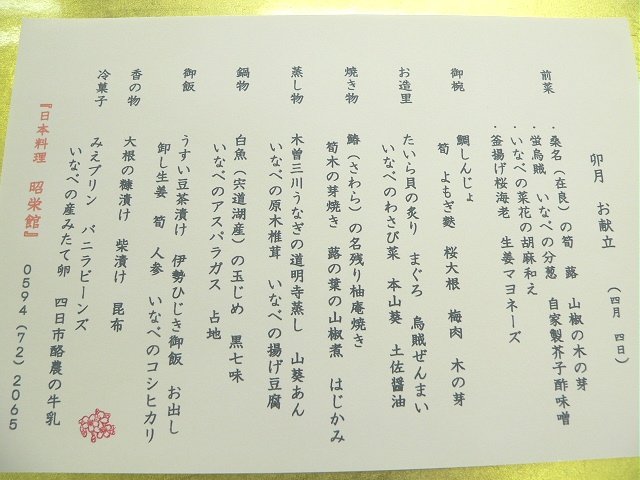 卯月　お献立　（四月　四日）
前菜　・桑名（在良）の筍　蕗　山椒の木の芽
・蛍烏賊　いなべの分葱　自家製芥子酢味噌
・いなべの菜花の胡麻和え
・釜揚げ桜海老　生姜マヨネーズ
御椀　鯛しんじょ
筍　よもぎ麩　桜大根　梅肉　木の芽
お造里　たいら貝の炙り　まぐろ　烏賊ぜんまい
いなべのわさび菜　本山葵　土佐醤油
焼き物　鰆（さわら）の名残り柚庵焼き
筍木の芽焼き　蕗の葉の山椒煮　はじかみ
蒸し物　木曽三川うなぎの道明寺蒸し　山葵あん
いなべの原木椎茸　いなべの揚げ豆腐
鍋物　白魚（宍道湖産）の玉じめ　黒七味
いなべのアスパラガス　占地
御飯　うすい豆茶漬け　伊勢ひじき御飯　お出し
卸し生姜　筍　人参　いなべのコシヒカリ
香の物　大根の糠漬け　柴漬け　昆布
冷菓子　みえプリン　バニラビーンズ
いなべの産みたて卵　四日市酪農の牛乳
『日本料理　昭栄館』　0594（72）2065